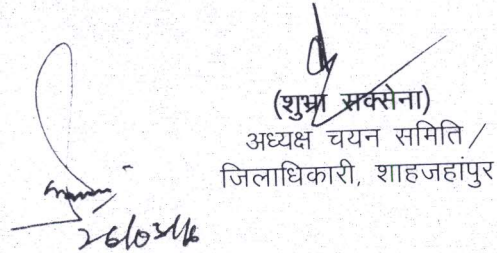 (शुभ्रा सक्सेना)
अध्यक्ष चयन समिति/
जिलाधिकारी, शाहजहांपुर
26/03/16